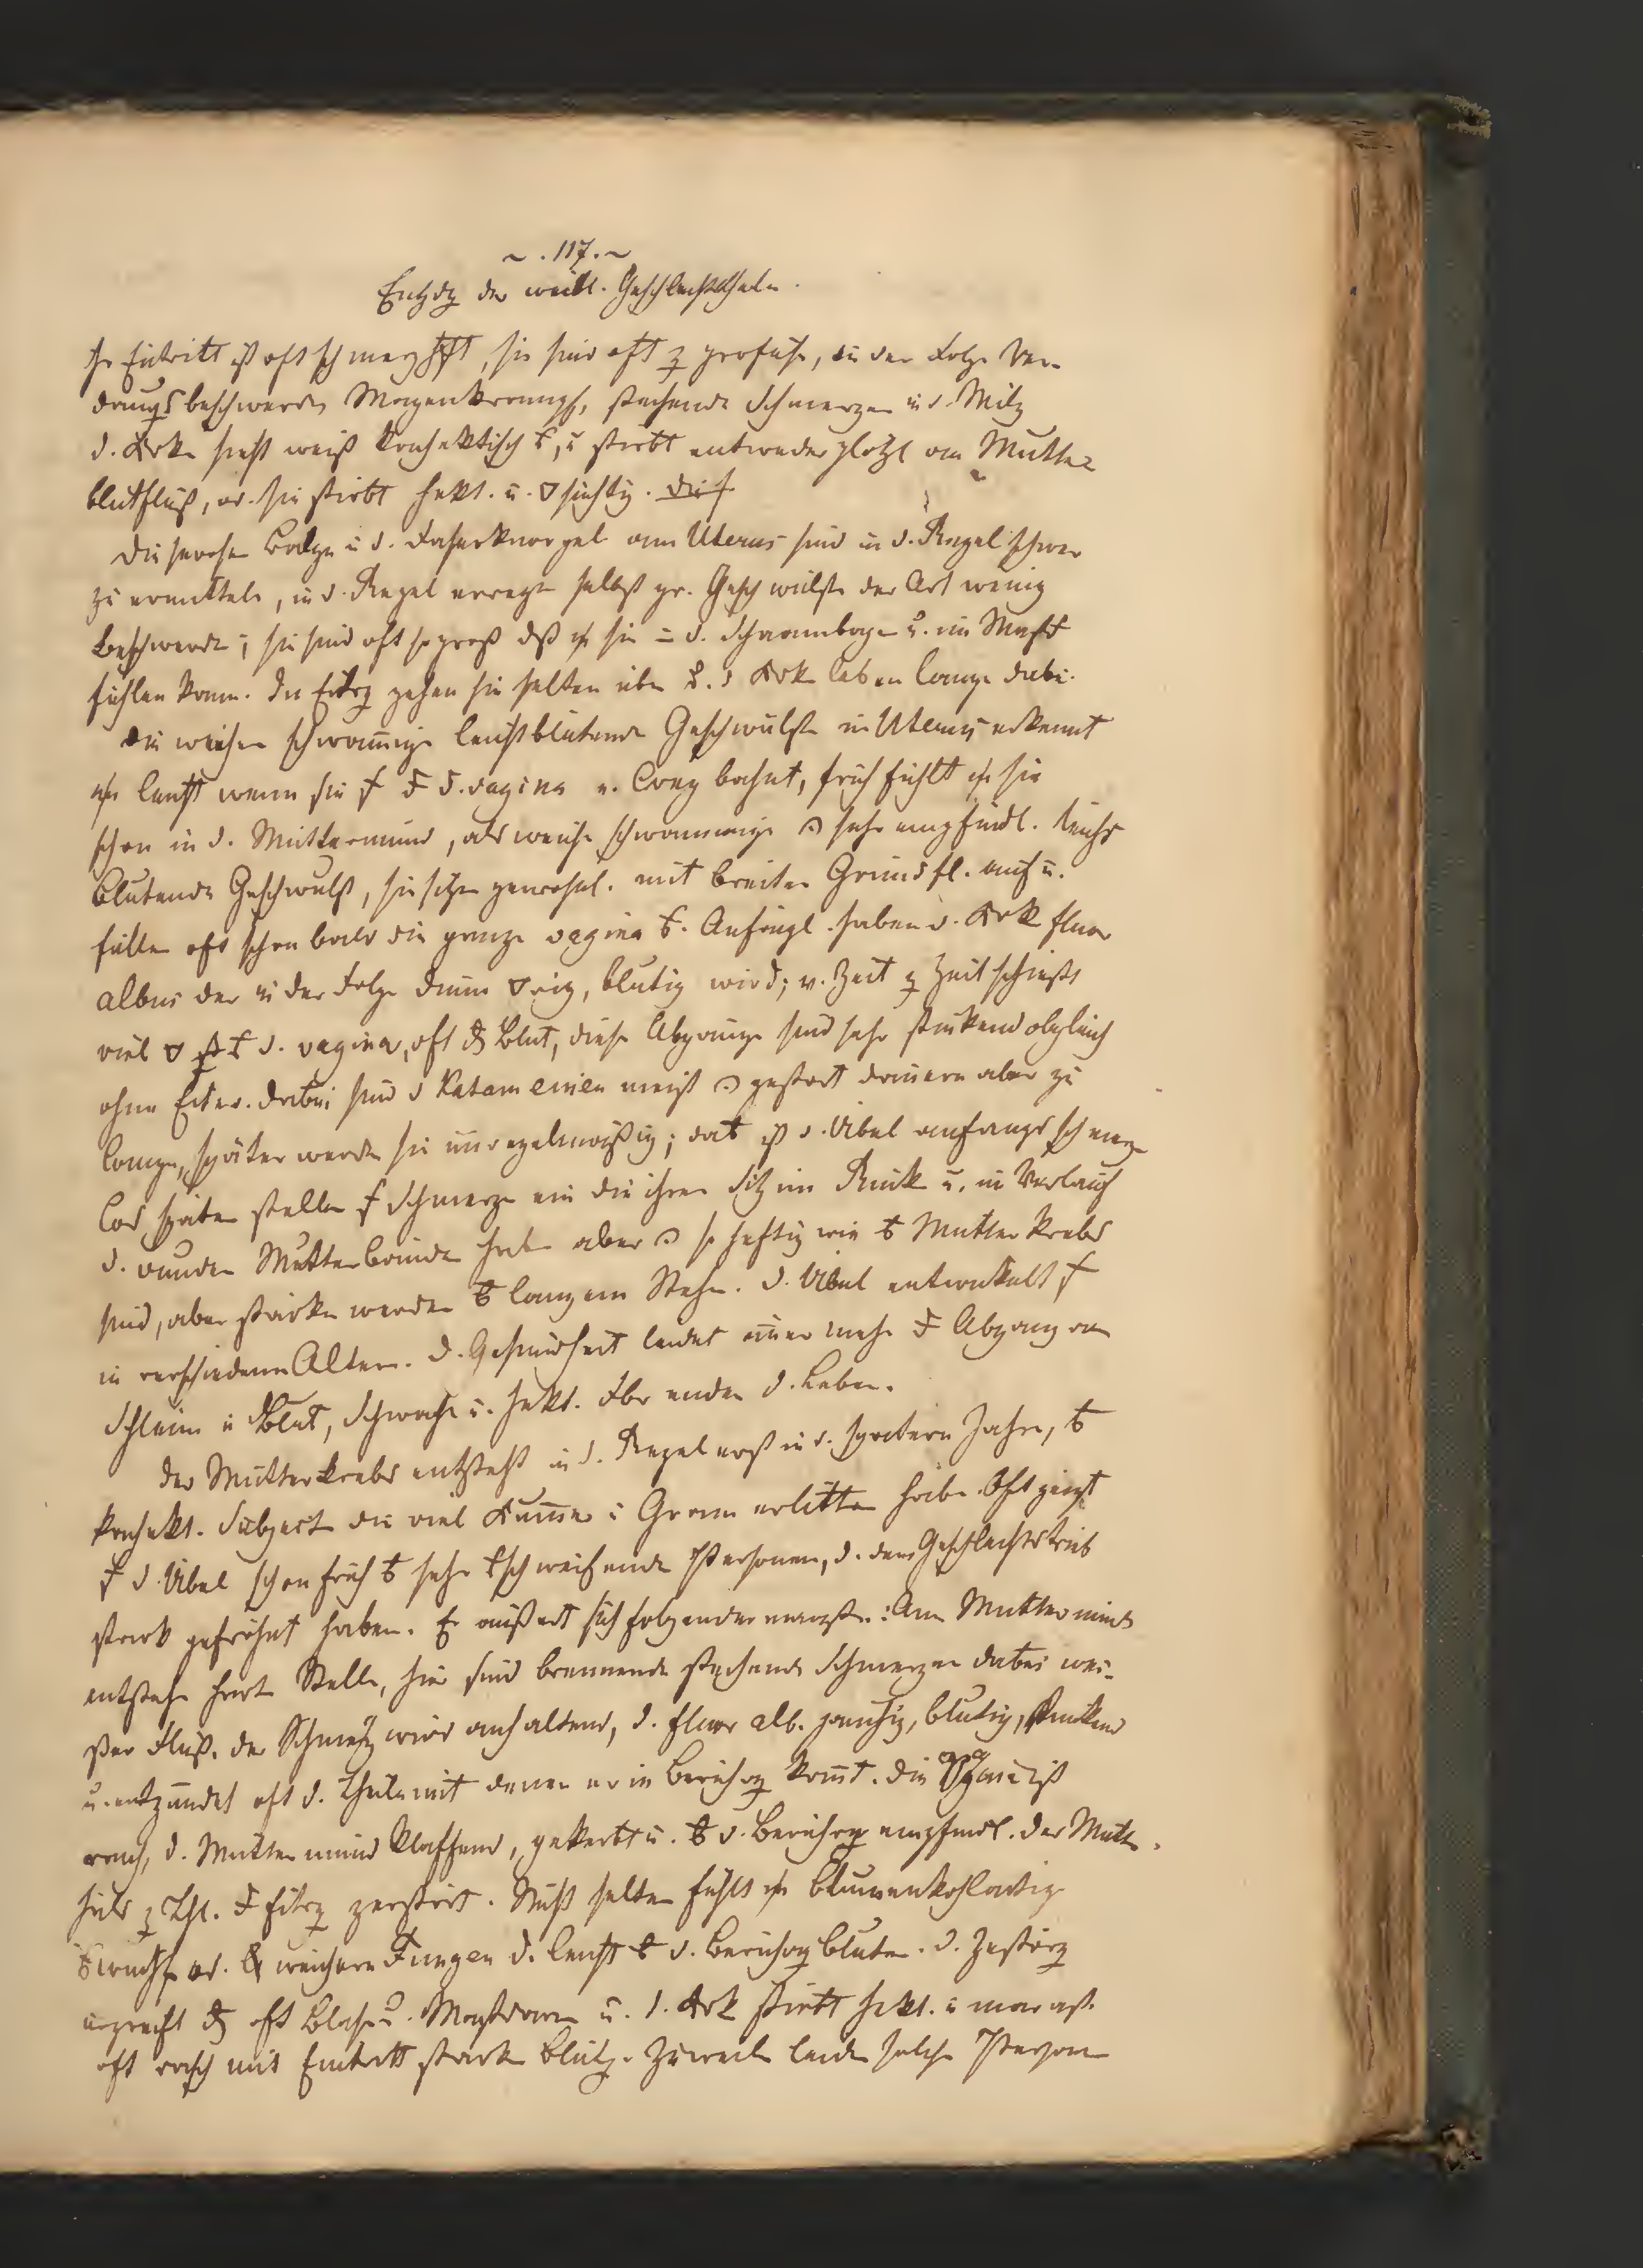 ~ . 117. ~
Entzdg der weibl. Geschlechtstheile.
Ihr Eintritt ist oft schmerzhft, sie sind oft z profuse, in der Folge Ver-
dauugsbeschwerden Magenkrampf, stechende Schmerzen in d. Milz
d. Krk sieht weiß kachektisch, u stirbt entweder plötzl am Mutter
blutfluß, od. sie stirbt hekt. u. ▽süchtig.
Die serosen Balge u d. Faserknorpel am Uterus sind in d. Regel schwer
zu ermitteln, in d. Regel erregen selbst gr. Geschwülste der Art wenig
Beschwerde; sie sind oft so groß dß sie in d. Schaambogen u. im Mast
fühlen kann. In Eitrg gehen sie selten über u. d Krk leben lange dabei.
Die weichen schwammige leichtblutende Geschwülste im Uterus erkennt
leicht wenn sie d. vagina e. Weg bahnt, früh fühlt sie
schon in d. Muttermund, als weiche schwammige sehr empfindl. leicht
blutende Geschwulst, sie sitzen gewöhnl. mit breiter Grundfl. auf u.
füllen oft schon bald die ganze vagina. Anfängl. haben d. Krk fluor
albus der in der Folge dünn ▽rig, blutig wird; v. Zeit z Zeit schießt
viel ▽ d. vagina, oft Blut, diese Abgänge sind sehr stinkend obgleich
ohne Eiter. Dabei sind d Katamenien meist gestört dauern aber zu
lange, später werden sie unregelmäßig; dat ist d. Übel anfangs schmerz
los später stellen Schmerze ein die ihren Sitz im Rück u. im Verlauf
d. runden Mutterbänder haben aber so heftig wie Mutterkrebs
sind, aber stärker werden langem Stehn. d. Übel entwickelt
in verschiedenen Alter. d. Gesundheit leidet immer mehr Abgang von
Schleim u Blut, Schwäche u. hekt. Fbr enden d. Leben.
Der Mutterkrebs entsteht in d. Regel erst in d. spätern Jahren,
kachekt. Subject die viel Kummer u Gram erlitten haben. Oft zeigt
d. Übel schon früh sehr schweifende Personen, d. dem Geschlechtstrieb
stark gefröhnt haben. Er äußert sich folgendermaaßen: Am Muttermund
entstehen harte Stelle, hier sind brennende stechende Schmerzen dabei wei-
ßer Fluß. der Schmerz wird anhaltend, d. fluor alb. jauchig, blutig, stinkend
u. entzündet oft d. Theile mit denen er in Berührg kommt. Die ist
rauh, d. Muttermund klaffend, gekerbt u. d. Berührg empfindl. der Mutter
hals z Thl. Eitrg zerstört. Nicht selten fühlt blumenkohlartige
od. weichere Fungen d. leicht d. Berührg bluten. d. Zerstörg
ergreift oft Blase u. Mastdarm u. d. Krk stirbt hekt. u marast.
oft rasch mit Eintritt starker Blutg. Zuweilen leiden solche Personen